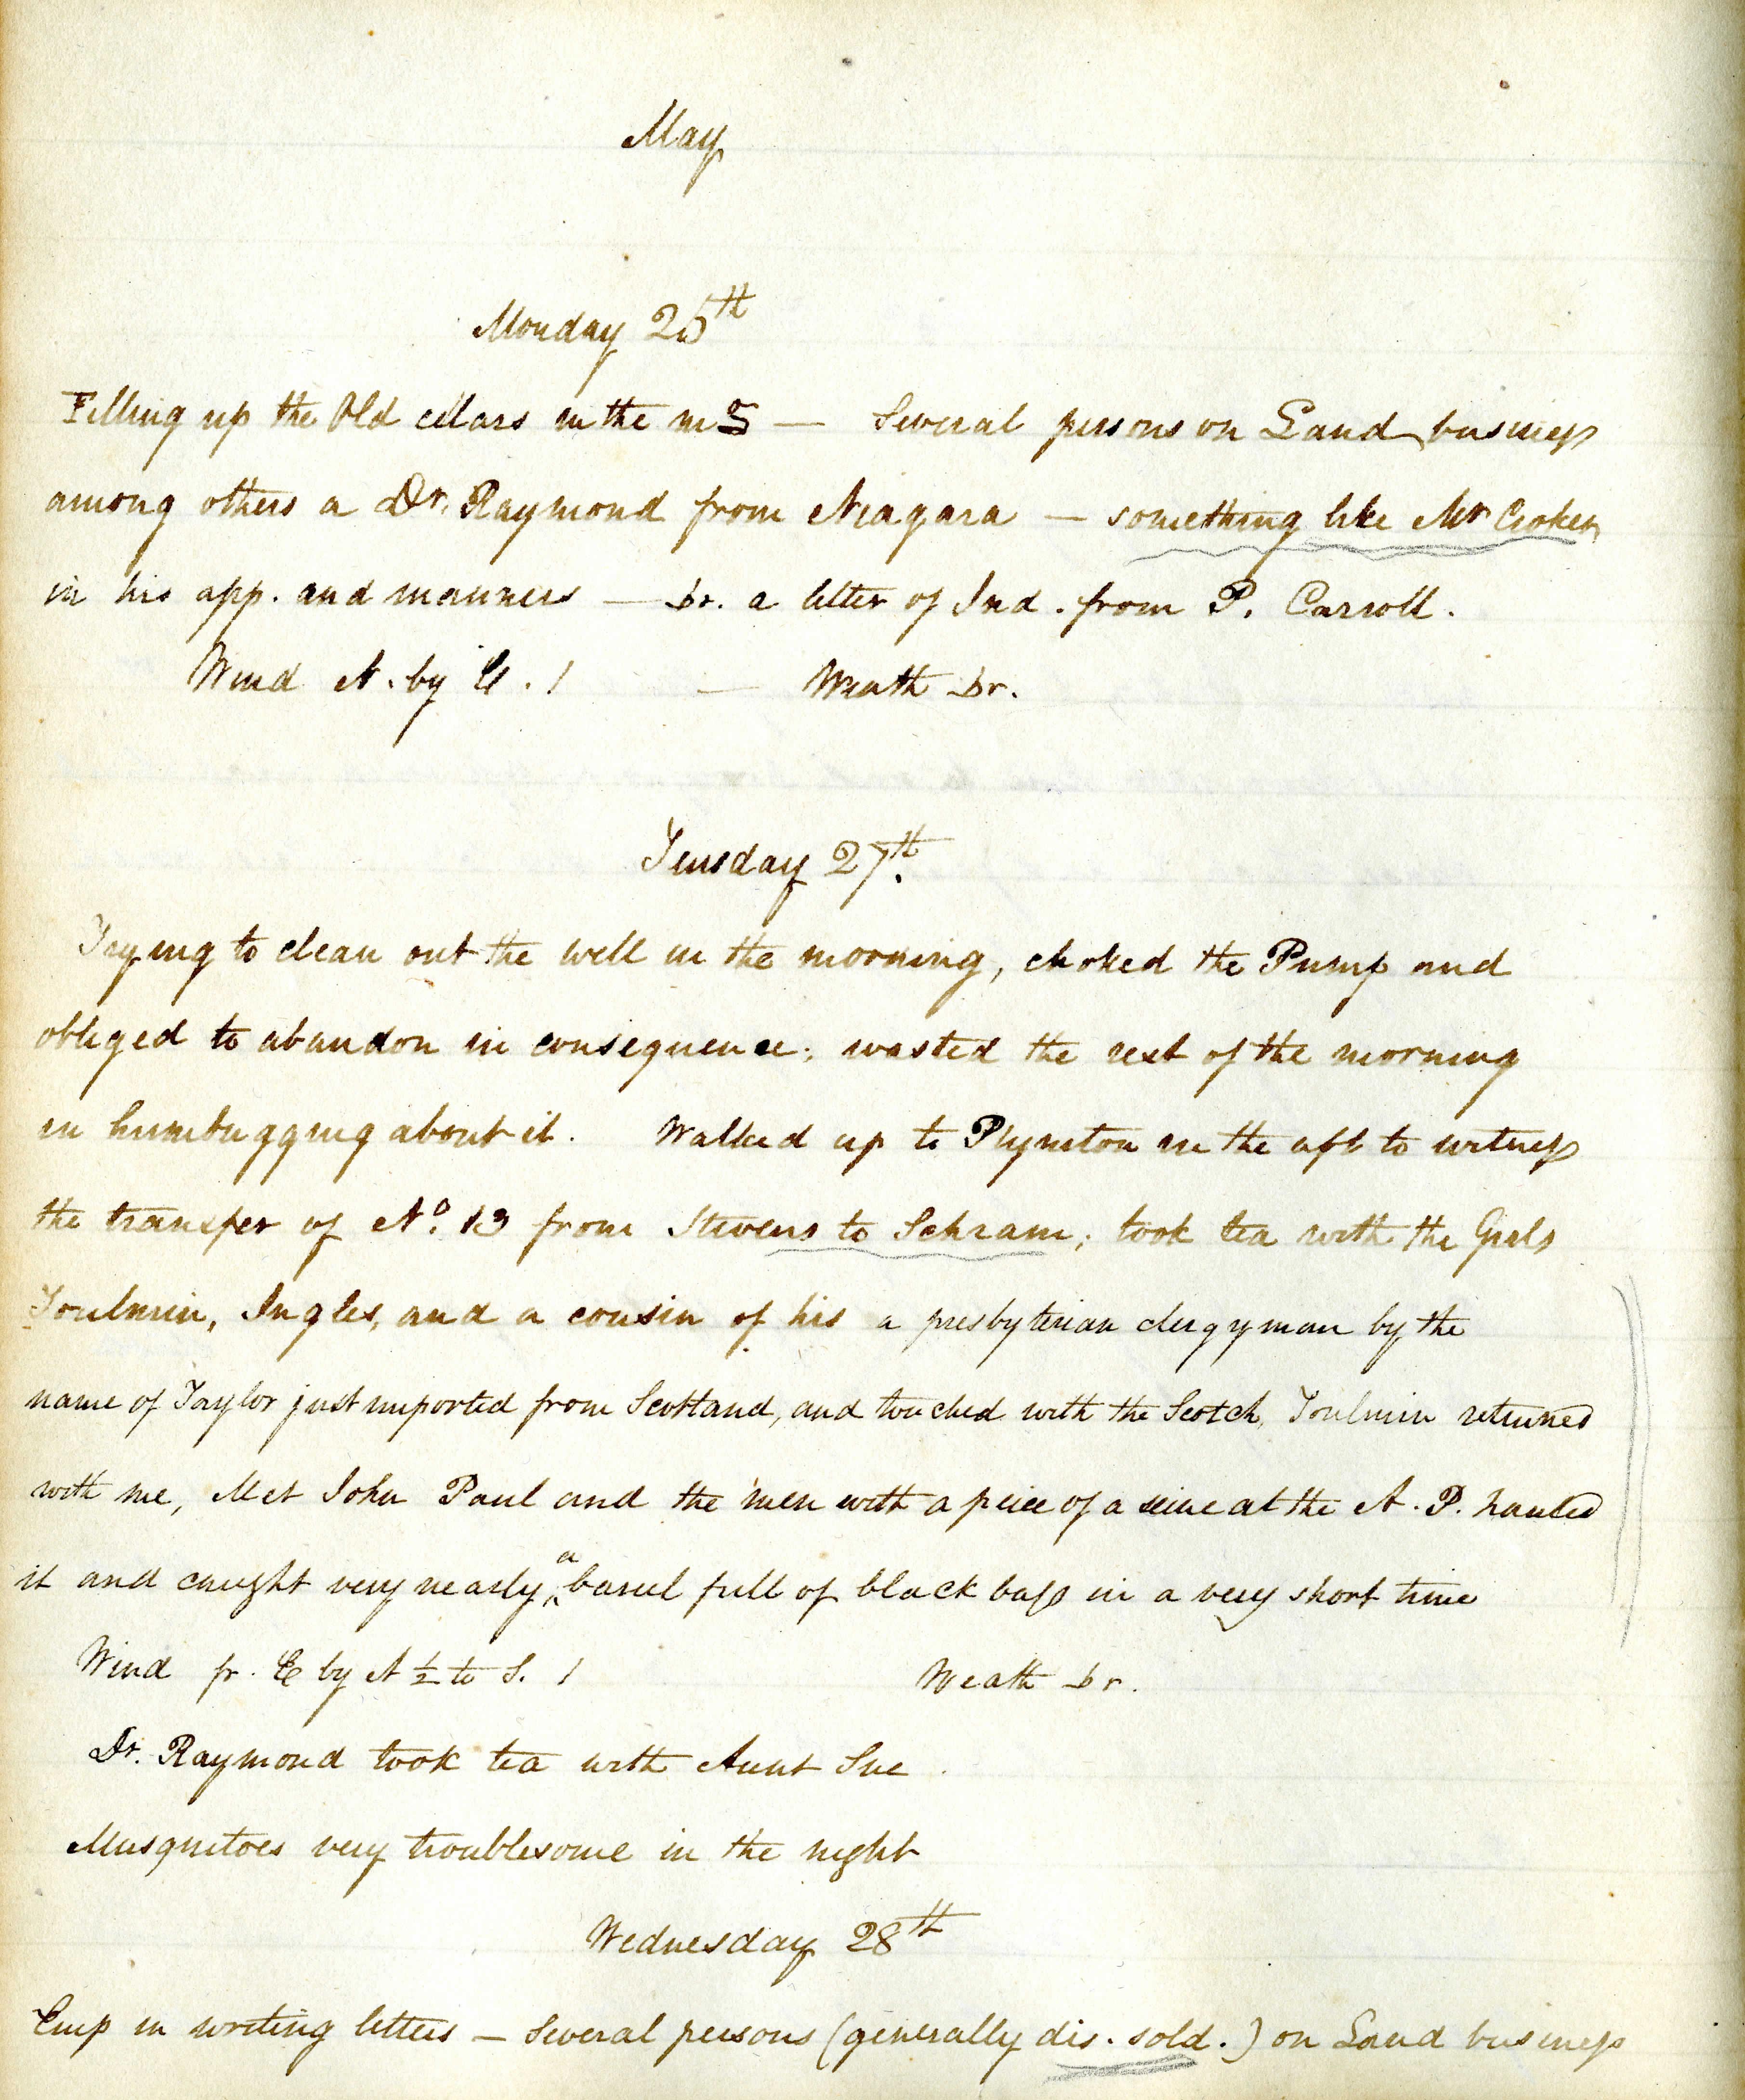 May
Monday 26th
Filling up the Old cellars in the mg — Several persons on Land business
among others a Dr. Raymond from Niagara — something like Mr Croker
in his app. and manners — br. a letter of Ind. from P. Carroll.
Wind N. by E. 1 — Weath br.
Teusday 27th.
Trying to clean out the well in the morning, choked the Pump and
obliged to abandon in consequence; wasted the rest of the morning
in humbugging about it. Walked up to Plymton in the aft to witness
the transfer of No. 13 from Stevens to Schram; took tea with the Girls
Toulmin, Ingles, and a cousin of his a presbyterian clergyman by the
name of Taylor just imported from Scotland, and touched with the Scotch, Toulmin returned
with me, Met John Paul and the men with a peice of a seine at the N. P. hauled
it and caught very nearly a barrel full of black bass in a very short time
Wind fr. E by N ½ to S. 1 Weath br.
Dr. Raymond took tea with Aunt Sue.
Musquitoes very troublesome in the night
Wednesday 28th
Emp in writing letters — Several persons (generally dis. sold.) on Land business